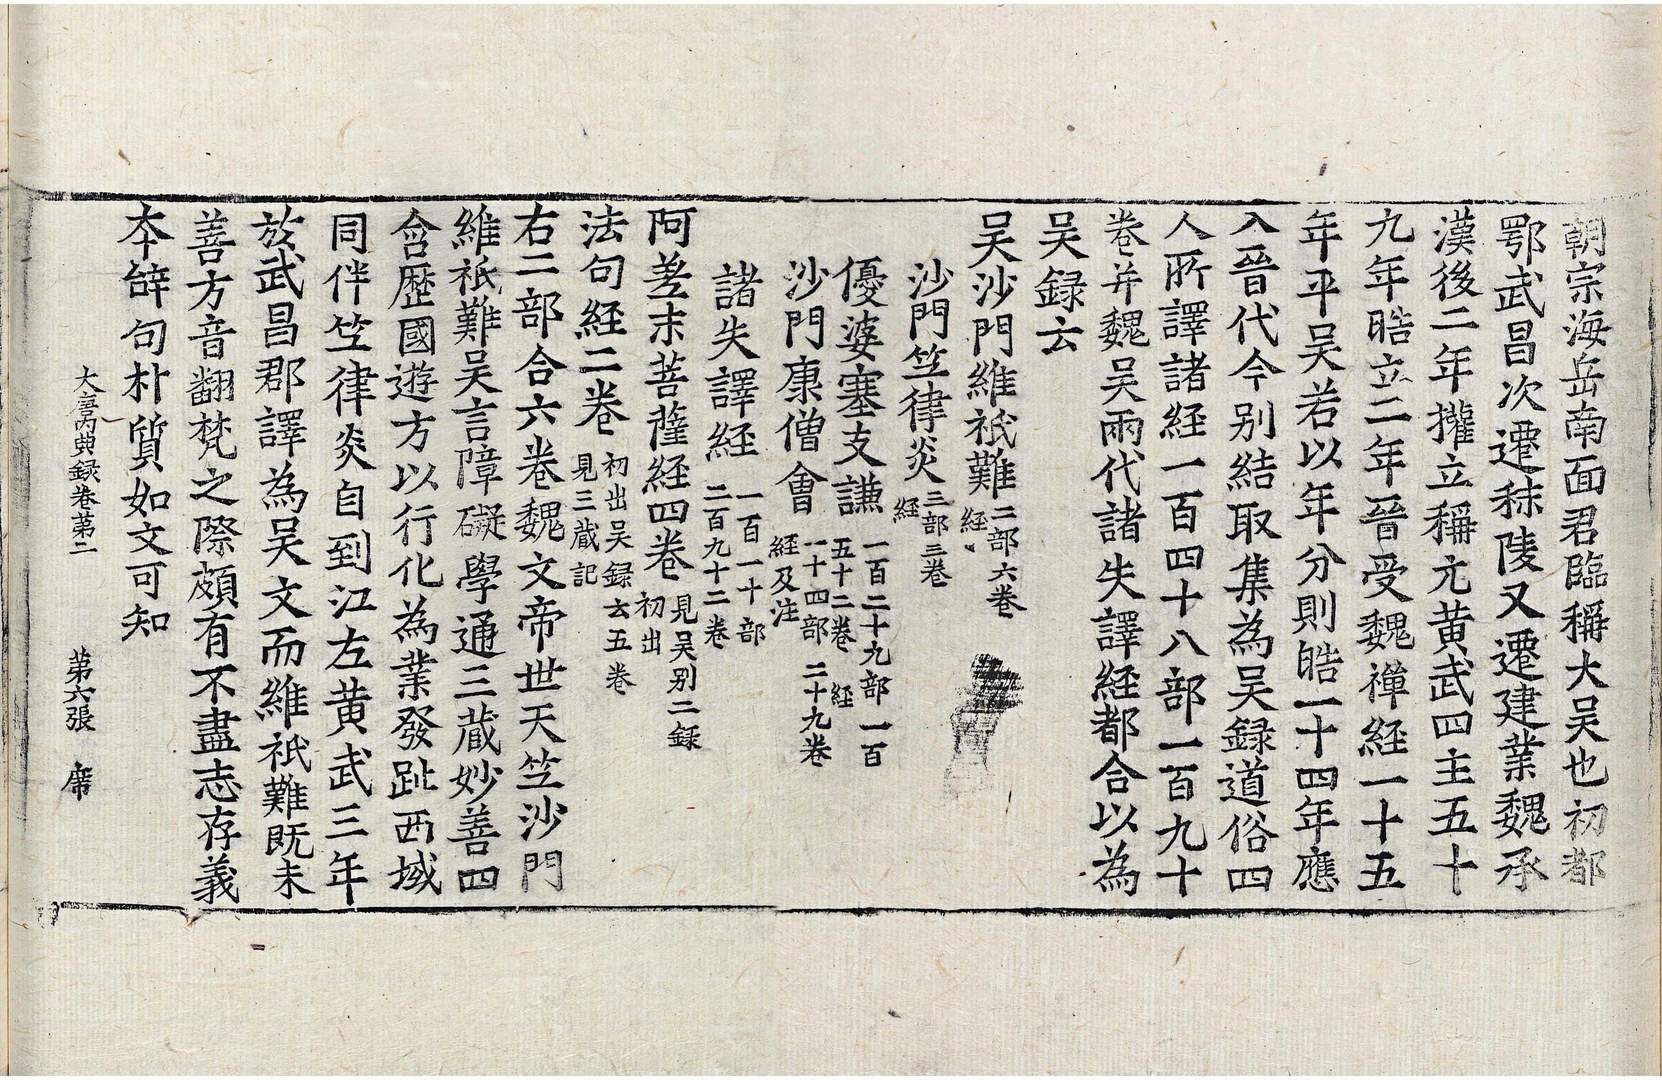 朝宗海岳南面君臨稱大吴也初都
鄂武昌次遷秣陵又遷建業魏承
漢後二年㩲立稱元黄武四主五十
九年晧立二年晉受魏禪經一十五
年平吴若以年分則晧一十四年應
入晉代今别結取集為吴録道俗四
人所譯諸経一百四十八部一百九十
卷并魏吴兩代諸失譯経都合以為
吴録云
吴沙門維祇難二部六卷
経
沙門竺律炎三部三卷
経
優婆塞支謙一百二十九部一百
五十二卷経
沙門康僧會一十四部二十九卷
経及注
諸失譯経一百一十部
二百九十二卷
阿差末菩薩経四卷見吴别二録
初出
法句経二卷初出吴録云五卷
見三蔵記
右二部合六卷魏文帝世天竺沙門
維祇難吴言障礙學通三蔵妙善四
含歷國遊方以行化為業發趾西域
同伴竺律炎自到江左黄武三年
於武昌郡譯為吴文而維祇難既未
善方音翻梵之際頗有不盡志存義
本辝句朴質如文可知
大唐内典録卷第二 第六張 席